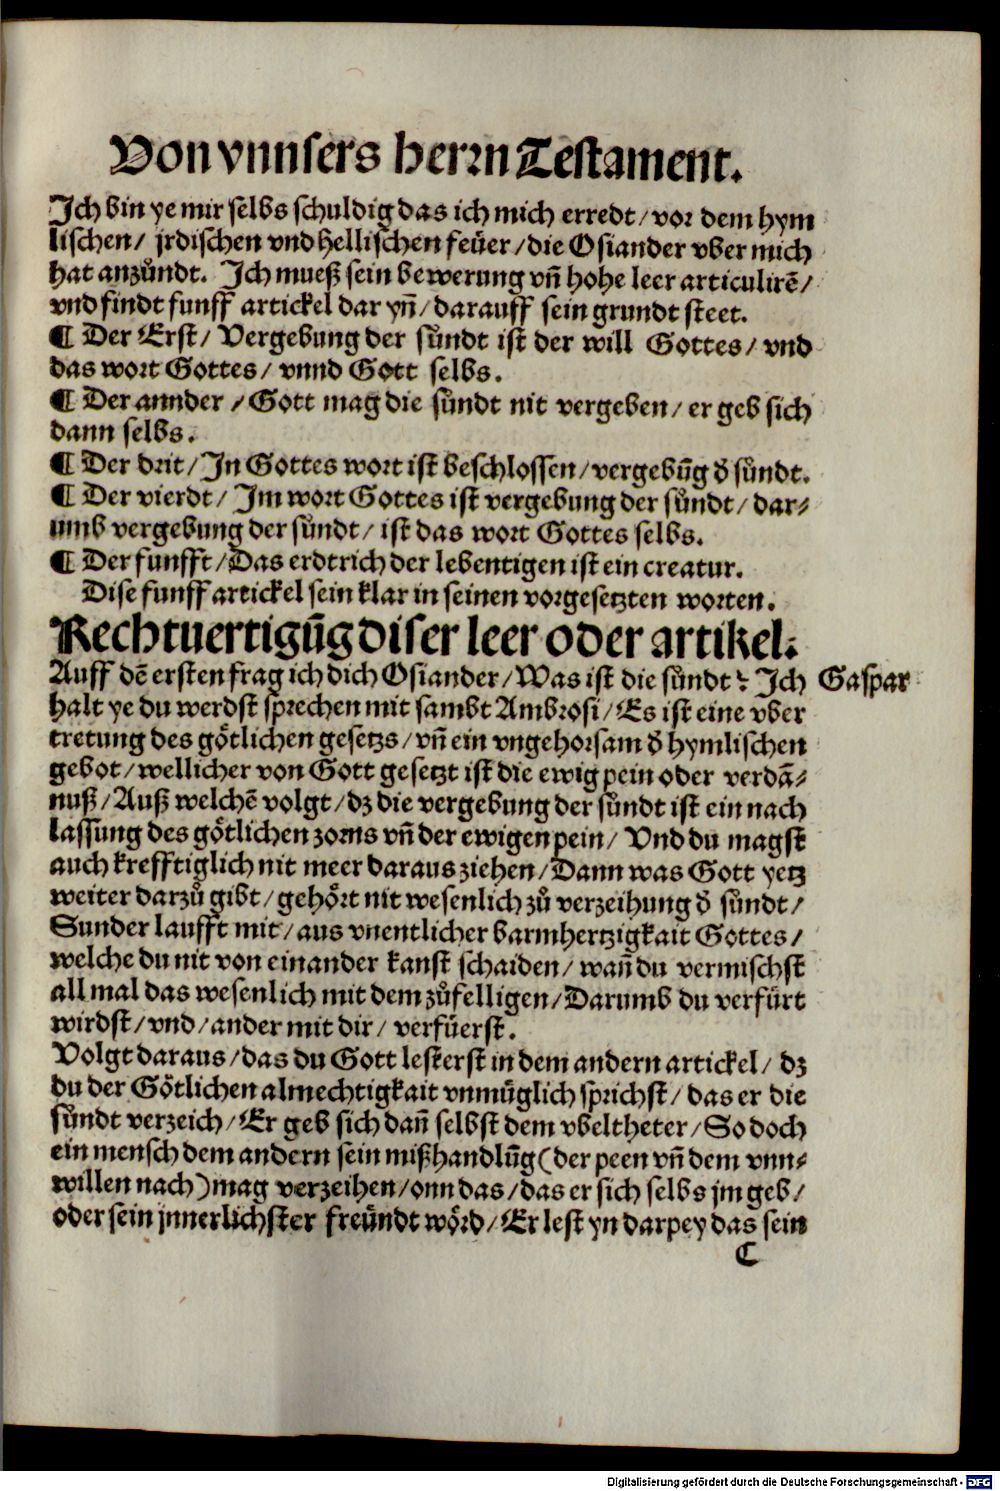 Von vnnsers herrn Testament.
Jch bin ye mir selbs schuldig das ich mich erredt/ vor dem hym
lischen/ jrdischen vnd hellischen feüer/ die Osiander vber mich
hat anzůndt. Jch mueß sein bewerung vñ hohe leer articulirē/
vnd findt funff artickel dar yñ/ darauff sein grundt steet.
¶ Der Erst/ Vergebung der sůndt ist der will Gottes/ vnd
das wort Gottes/ vnnd Gott selbs.
¶ Der annder/ Gott mag die sůndt nit vergeben/ er geb sich
dann selbs.
¶ Der drit/ Jn Gottes wort ist beschlossen/ vergebūg d̕ sůndt.
¶ Der vierdt/ Jm wort Gottes ist vergebung der sůndt/ dar⸗
umb vergebung der sůndt/ ist das wort Gottes selbs.
¶ Der funfft/ Das erdtrich der lebentigen ist ein creatur.
Dise funff artickel sein klar in seinen vorgesetzten worten.
Rechtuertigūg diser leer oder artikel.
Auff dē ersten frag ich dich Osiander/ Was ist die sůndt? Jch
Gaspar
halt ye du werdst sprechen mit sambt Ambrosi/ Es ist eine vber
tretung des götlichen gesetzs/ vñ ein vngehorsam d̕ hymlischen
gebot/ wellicher von Gott gesetzt ist die ewig pein oder verdā⸗
nuß/ Auß welchē volgt/ dz die vergebung der sůndt ist ein nach
lassung des götlichen zorns vñ der ewigen pein/ Vnd du magst
auch krefftiglich nit meer daraus ziehen/ Dann was Gott yetz
weiter darzů gibt/ gehört nit wesenlich zů verzeihung d̕ sůndt/
Sunder laufft mit/ aus vnentlicher barmhertzigkait Gottes/
welche du nit von einander kanst schaiden/ wañ du vermischst
all mal das wesenlich mit dem zůfelligen/ Darumb du verfürt
wirdst/ vnd/ ander mit dir/ verfüerst.
Volgt daraus/ das du Gott lesterst in dem andern artickel/ dz
du der Götlichen almechtigkait vnmüglich sprichst/ das er die
sůndt verzeich/ Er geb sich dañ selbst dem vbeltheter/ So doch
ein mensch dem andern sein mißhandlūg (der peen vñ dem vnn⸗
willen nach) mag verzeihen/ onn das/ das er sich selbs jm geb/
oder sein jnnerlichster freündt wörd/ Er lest yn darpey das sein
C
Digitalisierung gefördert durch die Deutsche Forschungsgemeinschaft - DFG